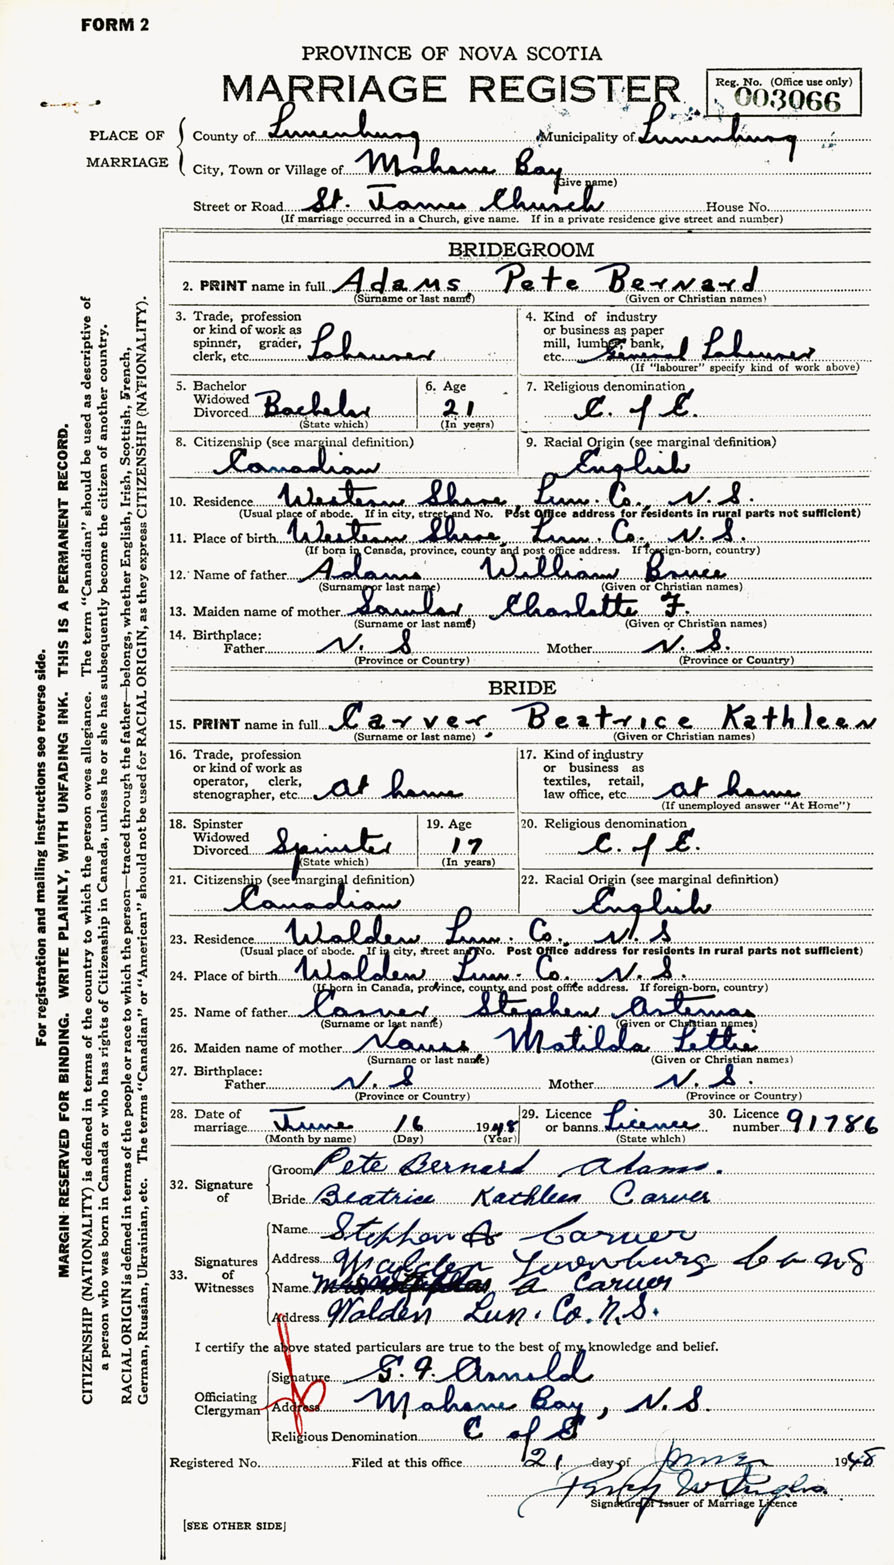 FORM 2
PROVINCE OF NOVA SCOTIA
MARRIAGE REGISTER
Reg. No. (Office use only)
003066
PLACE OF MARRIAGE
County of Lunenburg Municipality of Lunenburg
City, Town or Village of Mahone Bay
(Give name)
Street or Road St. James Church House No.
(If marriage occurred in a Church, give name. If in a private residence give street and number)
BRIDEGROOM
2. PRINT name in full Adams Pete Bernard
(Surname or last name) (Given or Christian names)
3. Trade, profession or kind of work as spinner, grader, clerk, etc. Labourer
4. Kind of industry or business as paper mill, lumber, bank, etc. General Labourer
(If "labourer" specify kind of work above)
5. Bachelor Widowed Divorced Bachelor
(State which)
6. Age 21
(In years)
7. Religious denomination C. of E.
8. Citizenship (see marginal definition)
Canadian
9. Racial Origin (see marginal definition)
English
10. Residence Western Shore, Lun. Co., N. S.
(Usual place of abode. If in city, street and No. Post Office address for residents in rural parts not sufficient)
11. Place of birth Western Shore, Lun. Co. N. S.
(If born in Canada, province, county and post office address. If foreign-born, country)
12. Name of father Adams William Bruce
(Surname or last name) (Given or Christian names)
13. Maiden name of mother Sawler Charlotte F.
(Surname or last name) (Given or Christian names)
14. Birthplace:
Father N. S Mother N. S.
(Province or Country) (Province or Country)
BRIDE
15. PRINT name in full Carver Beatrice Kathleen
(Surname or last name) (Given or Christian names)
16. Trade, profession or kind of work as operator, clerk, stenographer, etc. at home
17. Kind of industry or business as textiles, retail, law office, etc. at home
(If unemployed answer "At Home")
18. Spinster Widowed Divorced Spinster
(State which)
19. Age 17
(In years)
20. Religious denomination C. of E.
21. Citizenship (see marginal definition)
Canadian
22. Racial Origin (see marginal definition)
English
23. Residence Walden Lun. Co. N. S
(Usual place of abode. If in city, street and No. Post Office address for residents in rural parts not sufficient)
24. Place of birth Walden Lun. Co. N. S.
(If born in Canada, province, county and post office address. If foreign-born, country)
25. Name of father Carver Stephen Artemas
(Surname or last name) (Given or Christian names)
26. Maiden name of mother Nauss Matilda Lettie
(Surname or last name) (Given or Christian names)
27. Birthplace:
Father N. S Mother N. S.
(Province or Country) (Province or Country)
28. Date of marriage June 16 1948
(Month by name) (Day) (Year)
29. Licence or banns Licence
(State which)
30. Licence number 91786
32. Signature of
Groom Pete Bernard Adams.
Bride Beatrice Kathleen Carver
33. Signatures of Witnesses
Name Stephen A Carver
Address Walden Lunenburg Co NS
Name A Carver
Address Walden Lun. Co. N.S.
I certify the above stated particulars are true to the best of my knowledge and belief.
Officiating Clergyman
Signature G. F. Arnold
Address Mahone Bay, N. S.
Religious Denomination C of E
Registered No. Filed at this office 21 day of 1948
Signature of Issuer of Marriage Licence
[SEE OTHER SIDE]
For registration and mailing instructions see reverse side.
MARGIN RESERVED FOR BINDING. WRITE PLAINLY, WITH UNFADING INK. THIS IS A PERMANENT RECORD.
CITIZENSHIP (NATIONALITY) is defined in terms of the country to which the person owes allegiance. The term "Canadian" should be used as descriptive of
a person who was born in Canada or who has rights of Citizenship in Canada, unless he or she has subsequently become the citizen of another country.
RACIAL ORIGIN is defined in terms of the people or race to which the person—traced through the father—belongs, whether English, Irish, Scottish, French,
German, Russian, Ukrainian, etc. The terms "Canadian" or "American" should not be used for RACIAL ORIGIN, as they express CITIZENSHIP (NATIONALITY).